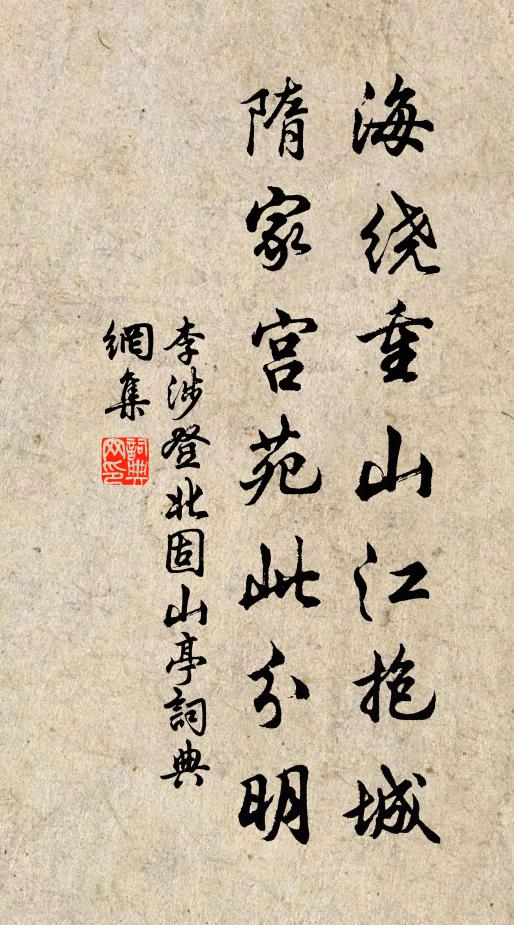 海绕重山江抱城
隋家宫苑此分明
李涉登北固山亭詞典
網集
詞典
网印